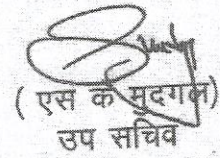 ( एस के मुदगल)
उप सचिव